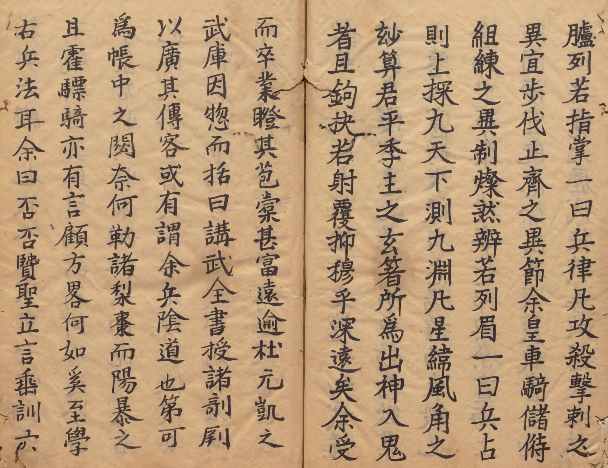 臚列若指掌一曰兵律凡攻殺擊刺之
異宜步伐止齊之異節余皇車騎儲偫
組練之異制燦然辨若列眉一曰兵占
則上探九天下測九淵凡星緯風角之
妙算君平季主之玄箸所為出神入鬼
者且鉤抉若射覆抑穆乎深遠矣余受
而卒業瞪其苞橐甚富遠逾杜元凱之
武庫因惣而括曰講武全書授諸剞劂
以廣其傳客或有謂余兵陰道也第可
為帳中之閟奈何勒諸梨棗而陽暴之
且霍驃騎亦有言顧方畧何如奚至學
古兵法耳余曰否否贒聖立言垂訓六